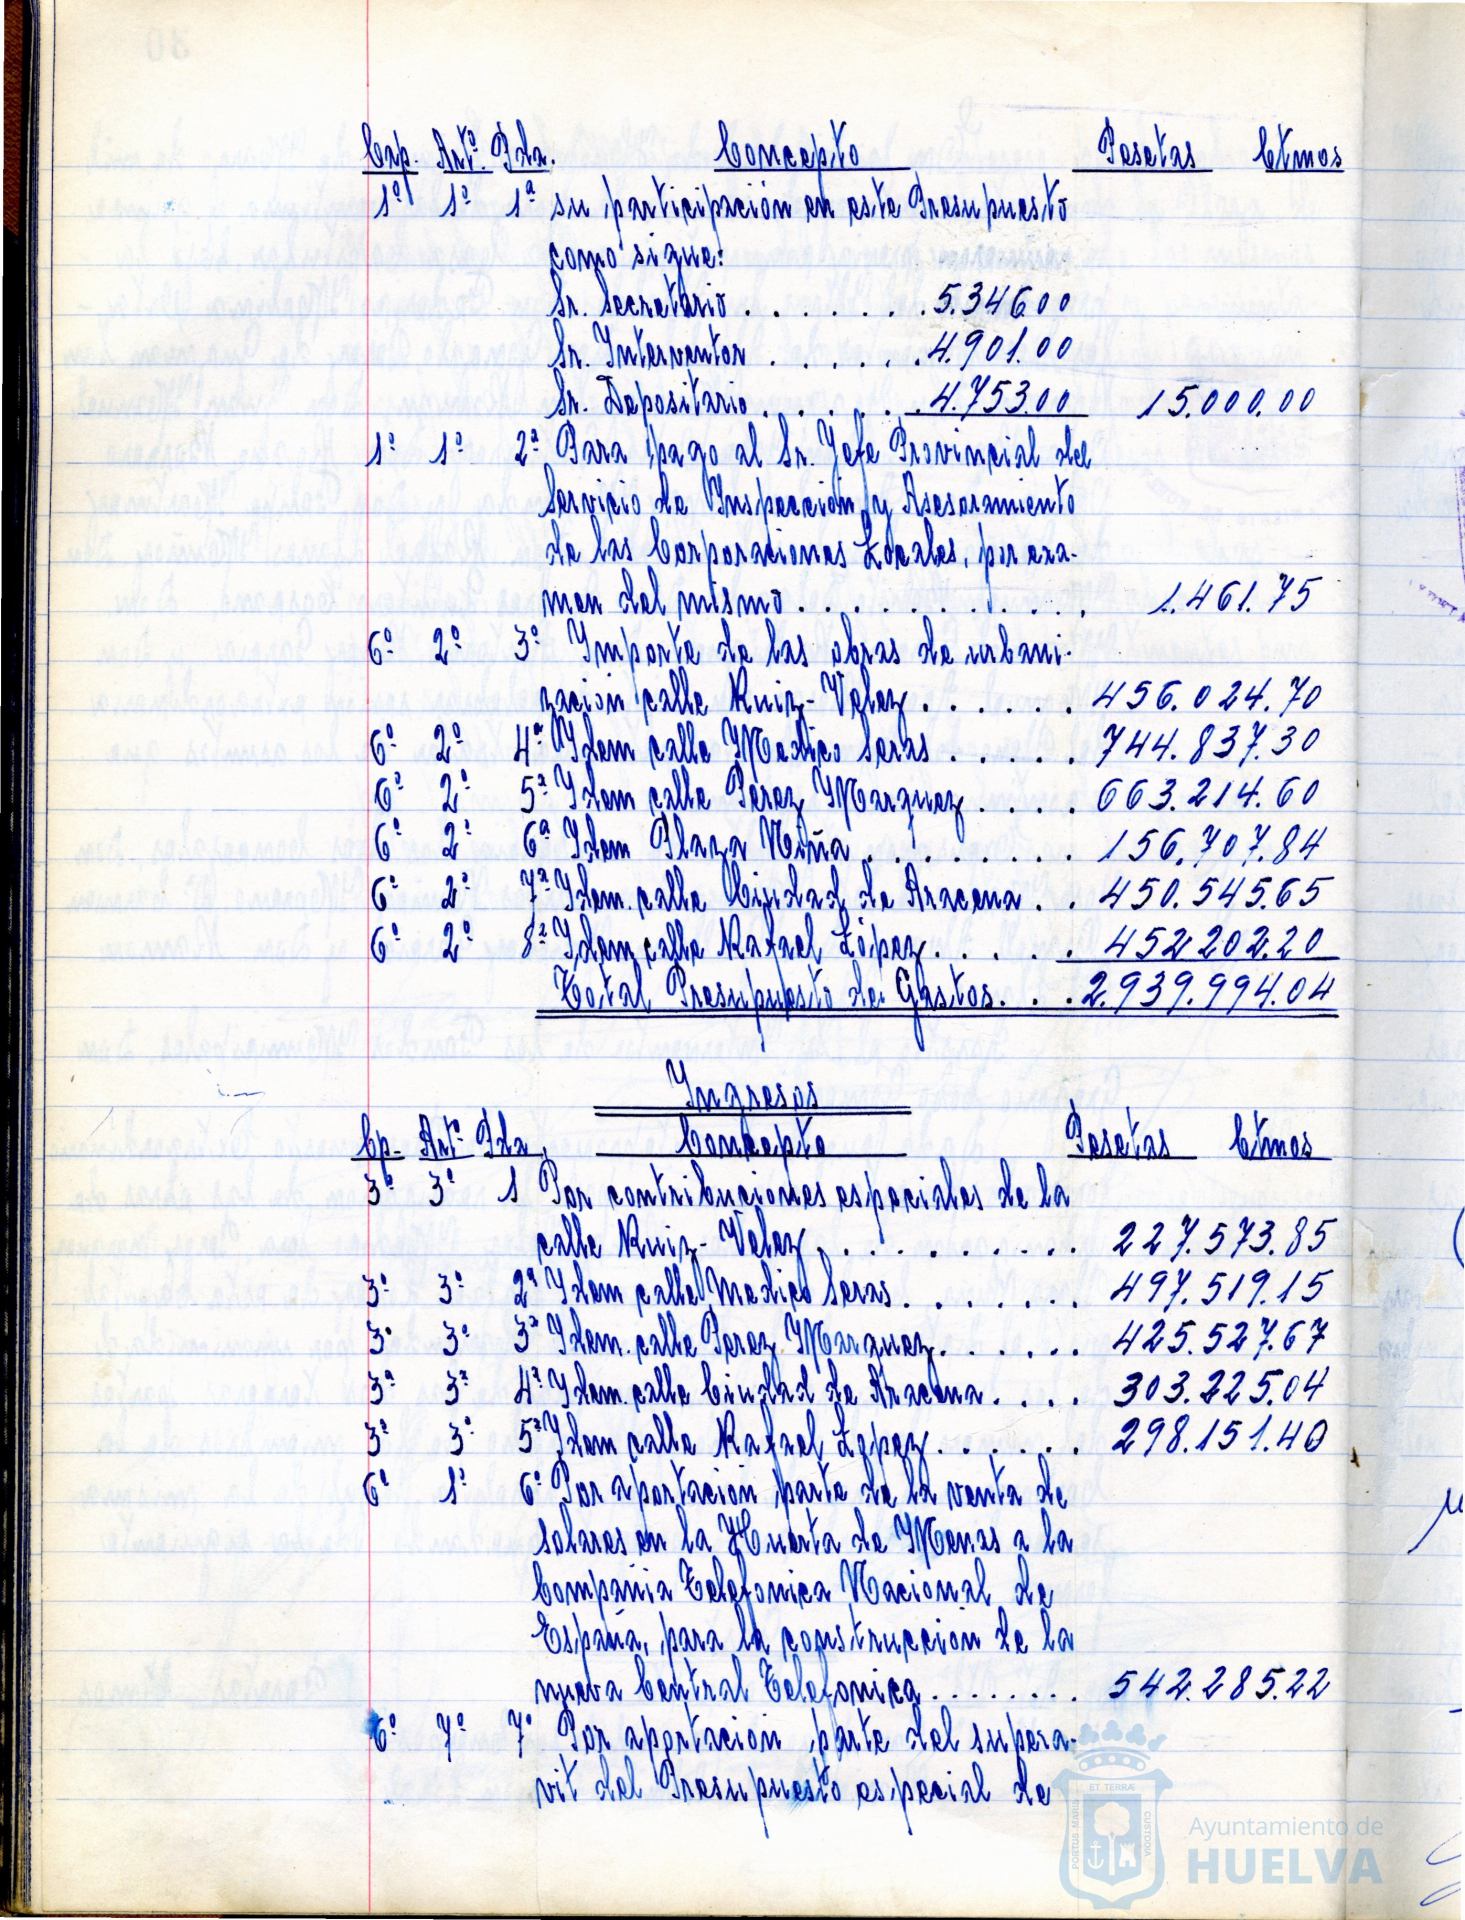 Cap. Artº. Pda. Concepto Pesetas Ctmos
1º 1º 1ª su participación en este Presupuesto
como sigue:
Sr. Secretario . . . . . . . . 5.346.00
Sr. Interventor . . . . . . . 4.901.00
Sr. Depositario . . . . . . . 4.753.00 15.000.00
1º 1º 2ª Para pago al Sr. Jefe Provincial del
Servicio de Inspección y Asesoramiento
de las Corporaciones Locales, por exa-
men del mismo . . . . . . . . . . . . 1.461.75
6º 2º 3ª Importe de las obras de urbani-
zación calle Ruiz-Velez . . . . . . 456.024.70
6º 2º 4ª Idem calle Medico Seras . . . . . 744.837.30
6º 2º 5ª Idem calle Perez Marquez . . . . 663.214.60
6º 2º 6ª Idem Plaza Niña . . . . . . . . . 156.707.84
6º 2º 7ª Idem. calle Ciudad de Aracena . . 450.545.65
6º 2º 8ª Idem calle Rafael López . . . . . 452.202.20
Total Presupuesto de Gastos . . . 2.939.994.04
Ingresos
Cp. Artº. Pda Concepto Pesetas Ctmos
3º 3º 1 Por contribuciones especiales de la
calle Ruiz-Velez . . . . . . . . . . . 227.573.85
3º 3º 2ª Idem calle Medico Seras . . . . . . . 497.519.15
3º 3º 3ª Idem. calle Perez Marquez . . . . . . 425.527.67
3º 3º 4ª Idem. calle Ciudad de Aracena . . . . 303.225.04
3º 3º 5ª Idem calle Rafael Lopez . . . . . . 298.151.40
6º 1º 6º Por aportación parte de la venta de
solares en la Huerta de Menas a la
Compañia Telefonica Nacional de
España, para la construccion de la
nueva Central Telefonica . . . . . . . . 542.285.22
6º 7º 7º Por aportación parte del supera-
vit del Presupuesto especial de
ET TERRÆ
PORTUS MARIS
CUSTODIA
Ayuntamiento de
HUELVA